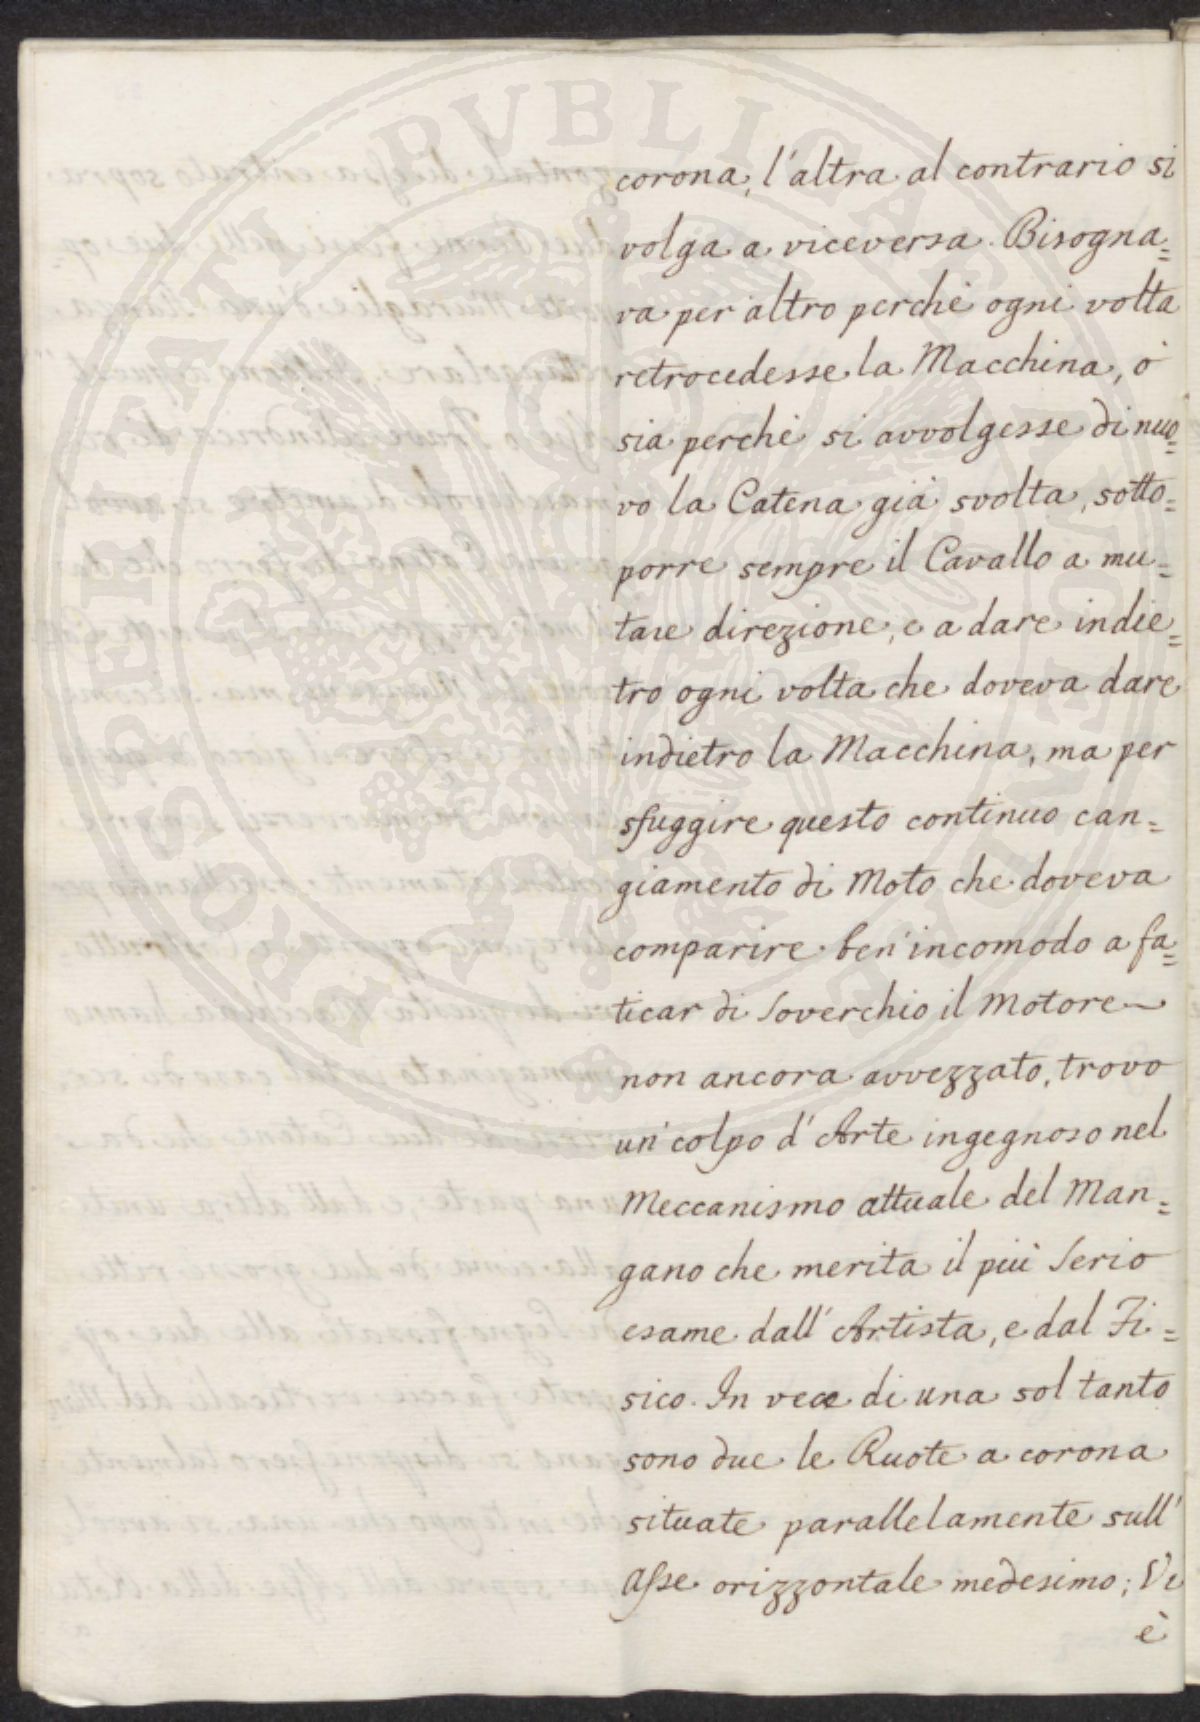 corona, l'altra al contrario si
volga a viceversa. Bisogna=
va per altro perchè ogni volta
retrocedesse la Macchina, ò
sia perchè si avvolgesse di nuo=
vo la Catena già svolta, sotto=
porre sempre il Cavallo a mu=
tare direzione, e a dare indie=
tro ogni volta che doveva dare
indietro la Macchina, ma per
sfuggire questo continuo can=
giamento di Moto che doveva
comparire ben' incomodo a fa=
ticar di soverchio il Motore
non ancora avvezzato, trovo
un' colpo d' Arte ingegnoso nel
Meccanismo attuale del Man=
gano che merita il più serio
esame dall' Artista, e dal Fi=
sico. In vece di una sol tanto
sono due le Ruote a corona
situate parallelamente sull'
Asse orizzontale medesimo; Vi
è
PROSPERITATI PUBLICAE AUGENDAE